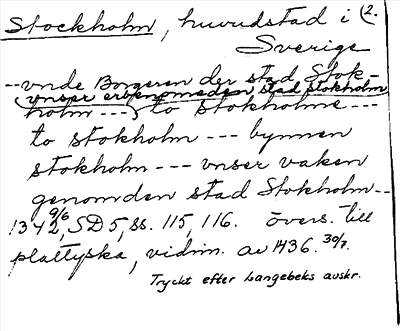 Stockholm, huvudstad i (2.
Sverige
-- vnde Borgeren der stad Stok-
(vnser erbenomeden stad stokholm
holm ---) to stokholme ---
to stokholm --- bynnen
stokholm --- vnser vaken
genomden stad Stokholm --
1342 9/6, SD 5, ss. 115, 116. övers. till
plattyska, vidim. av 1436. 30/7.
Tryckt efter Langebeks avskr.